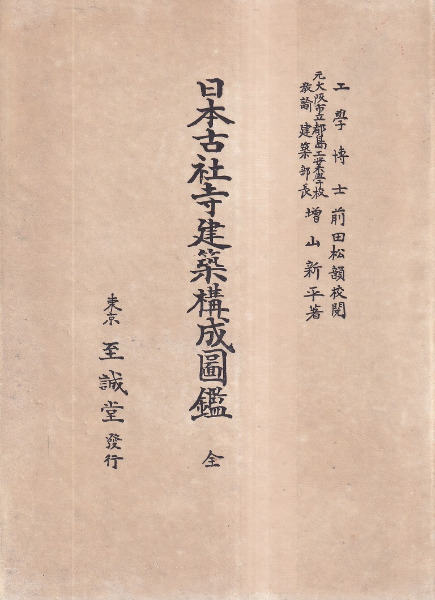 工學博士 前田松韻校閲
元大阪市立都島工業學校
教諭 建築部長 増山新平著
日本古社寺建築構成圖鑑 全
東京 至誠堂 發行